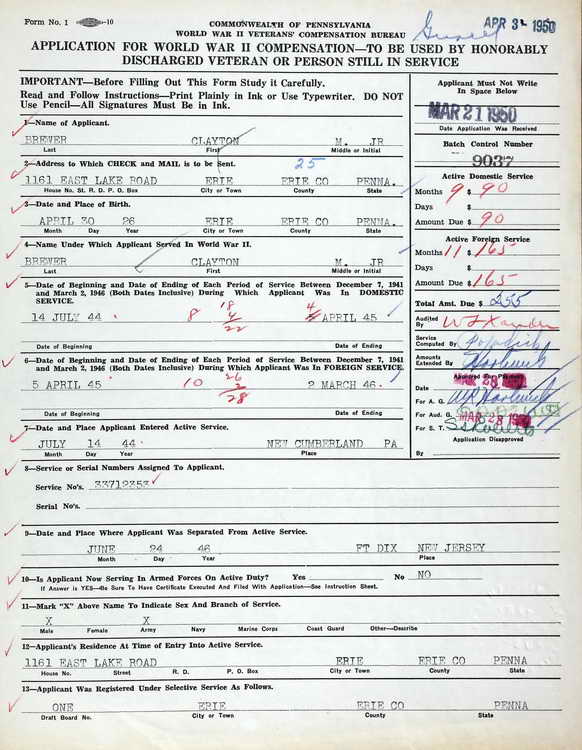 Form No. 1 -10
COMMONWEALTH OF PENNSYLVANIA
WORLD WAR II VETERANS' COMPENSATION BUREAU
APR 3 1950
APPLICATION FOR WORLD WAR II COMPENSATION—TO BE USED BY HONORABLY
DISCHARGED VETERAN OR PERSON STILL IN SERVICE
IMPORTANT—Before Filling Out This Form Study it Carefully.
Read and Follow Instructions—Print Plainly in Ink or Use Typewriter. DO NOT
Use Pencil—All Signatures Must Be in Ink.
Applicant Must Not Write
In Space Below
MAR 21 1950
Date Application Was Received
Batch Control Number
9037
1—Name of Applicant.
BREWER CLAYTON M. JR
Last First Middle or Initial
2—Address to Which CHECK and MAIL is to be Sent.
25
1161 EAST LAKE ROAD ERIE ERIE CO PENNA.
House No. St. R. D. P. O. Box City or Town County State
3—Date and Place of Birth.
APRIL 30 26 ERIE ERIE CO PENNA.
Month Day Year City or Town County State
4—Name Under Which Applicant Served In World War II.
BREWER CLAYTON M. JR
Last First Middle or Initial
5—Date of Beginning and Date of Ending of Each Period of Service Between December 7, 1941
and March 2, 1946 (Both Dates Inclusive) During Which Applicant Was In DOMESTIC
SERVICE.
18
14 JULY 44 8 4 4 APRIL 45
22
Date of Beginning Date of Ending
6—Date of Beginning and Date of Ending of Each Period of Service Between December 7, 1941
and March 2, 1946 (Both Dates Inclusive) During Which Applicant Was In FOREIGN SERVICE.
26
5 APRIL 45 10 2 2 MARCH 46
28
Date of Beginning Date of Ending
Active Domestic Service
Months 9 $ 90
Days $
Amount Due $ 90
Active Foreign Service
Months 11 $ 165
Days $
Amount Due $ 165
Total Amt. Due $ 255
Audited
By
Service
Computed By
Amounts
Extended By
Approved For Payment
Date MAR 28 1950
For A. G.
For Aud. G. MAR 28 1950
For S. T.
Application Disapproved
By
7—Date and Place Applicant Entered Active Service.
JULY 14 44 NEW CUMBERLAND PA
Month Day Year Place
8—Service or Serial Numbers Assigned To Applicant.
Service No's. 33712353
Serial No's.
9—Date and Place Where Applicant Was Separated From Active Service.
JUNE 24 46 FT DIX NEW JERSEY
Month Day Year Place
10—Is Applicant Now Serving In Armed Forces On Active Duty? Yes No NO
If Answer is YES—Be Sure To Have Certificate Executed And Filed With Application—See Instruction Sheet.
11—Mark "X" Above Name To Indicate Sex And Branch of Service.
X X
Male Female Army Navy Marine Corps Coast Guard Other—Describe
12—Applicant's Residence At Time of Entry Into Active Service.
1161 EAST LAKE ROAD ERIE ERIE CO PENNA
House No. Street R. D. P. O. Box City or Town County State
13—Applicant Was Registered Under Selective Service As Follows.
ONE ERIE ERIE CO PENNA
Draft Board No. City or Town County State